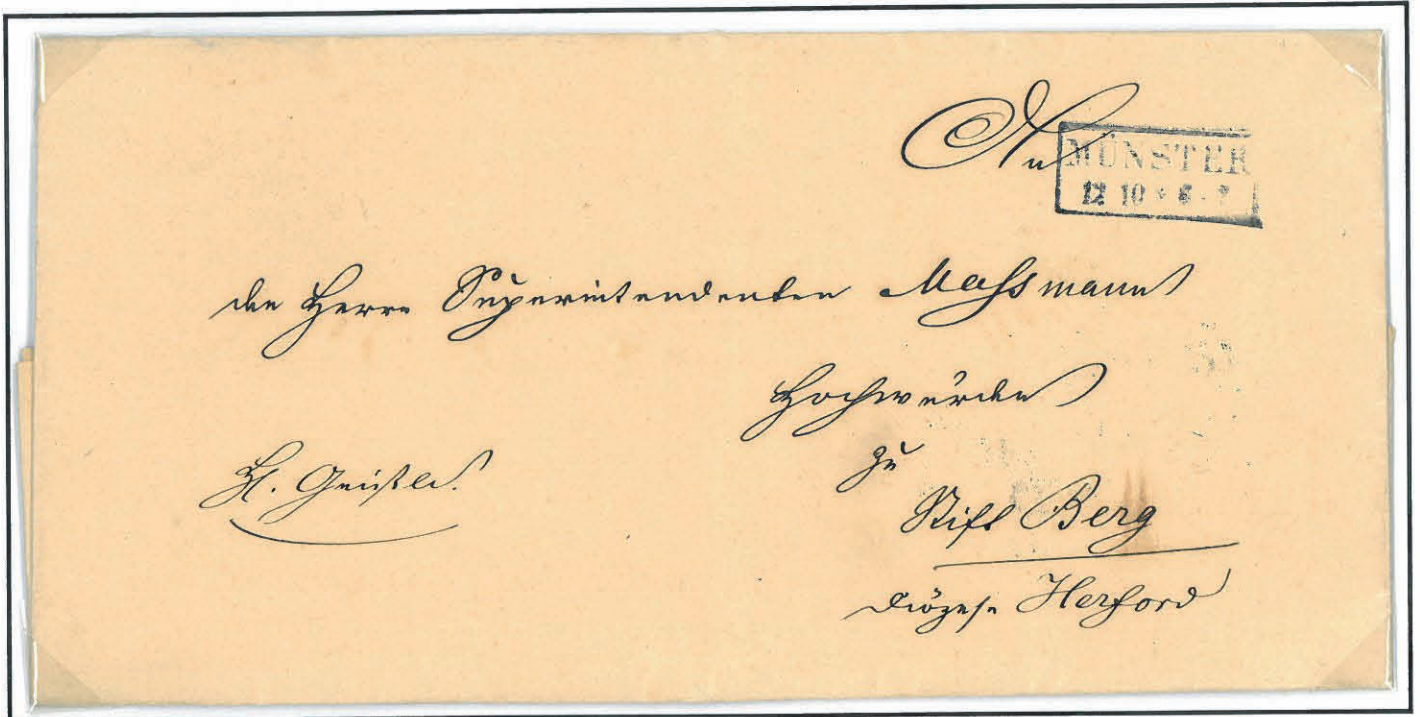 An
MÜNSTER
12 10 * 6 - 7
den Herrn Superintendenten Maßmann
Hochwürden
zu
Stift Berg
Diözese Herford